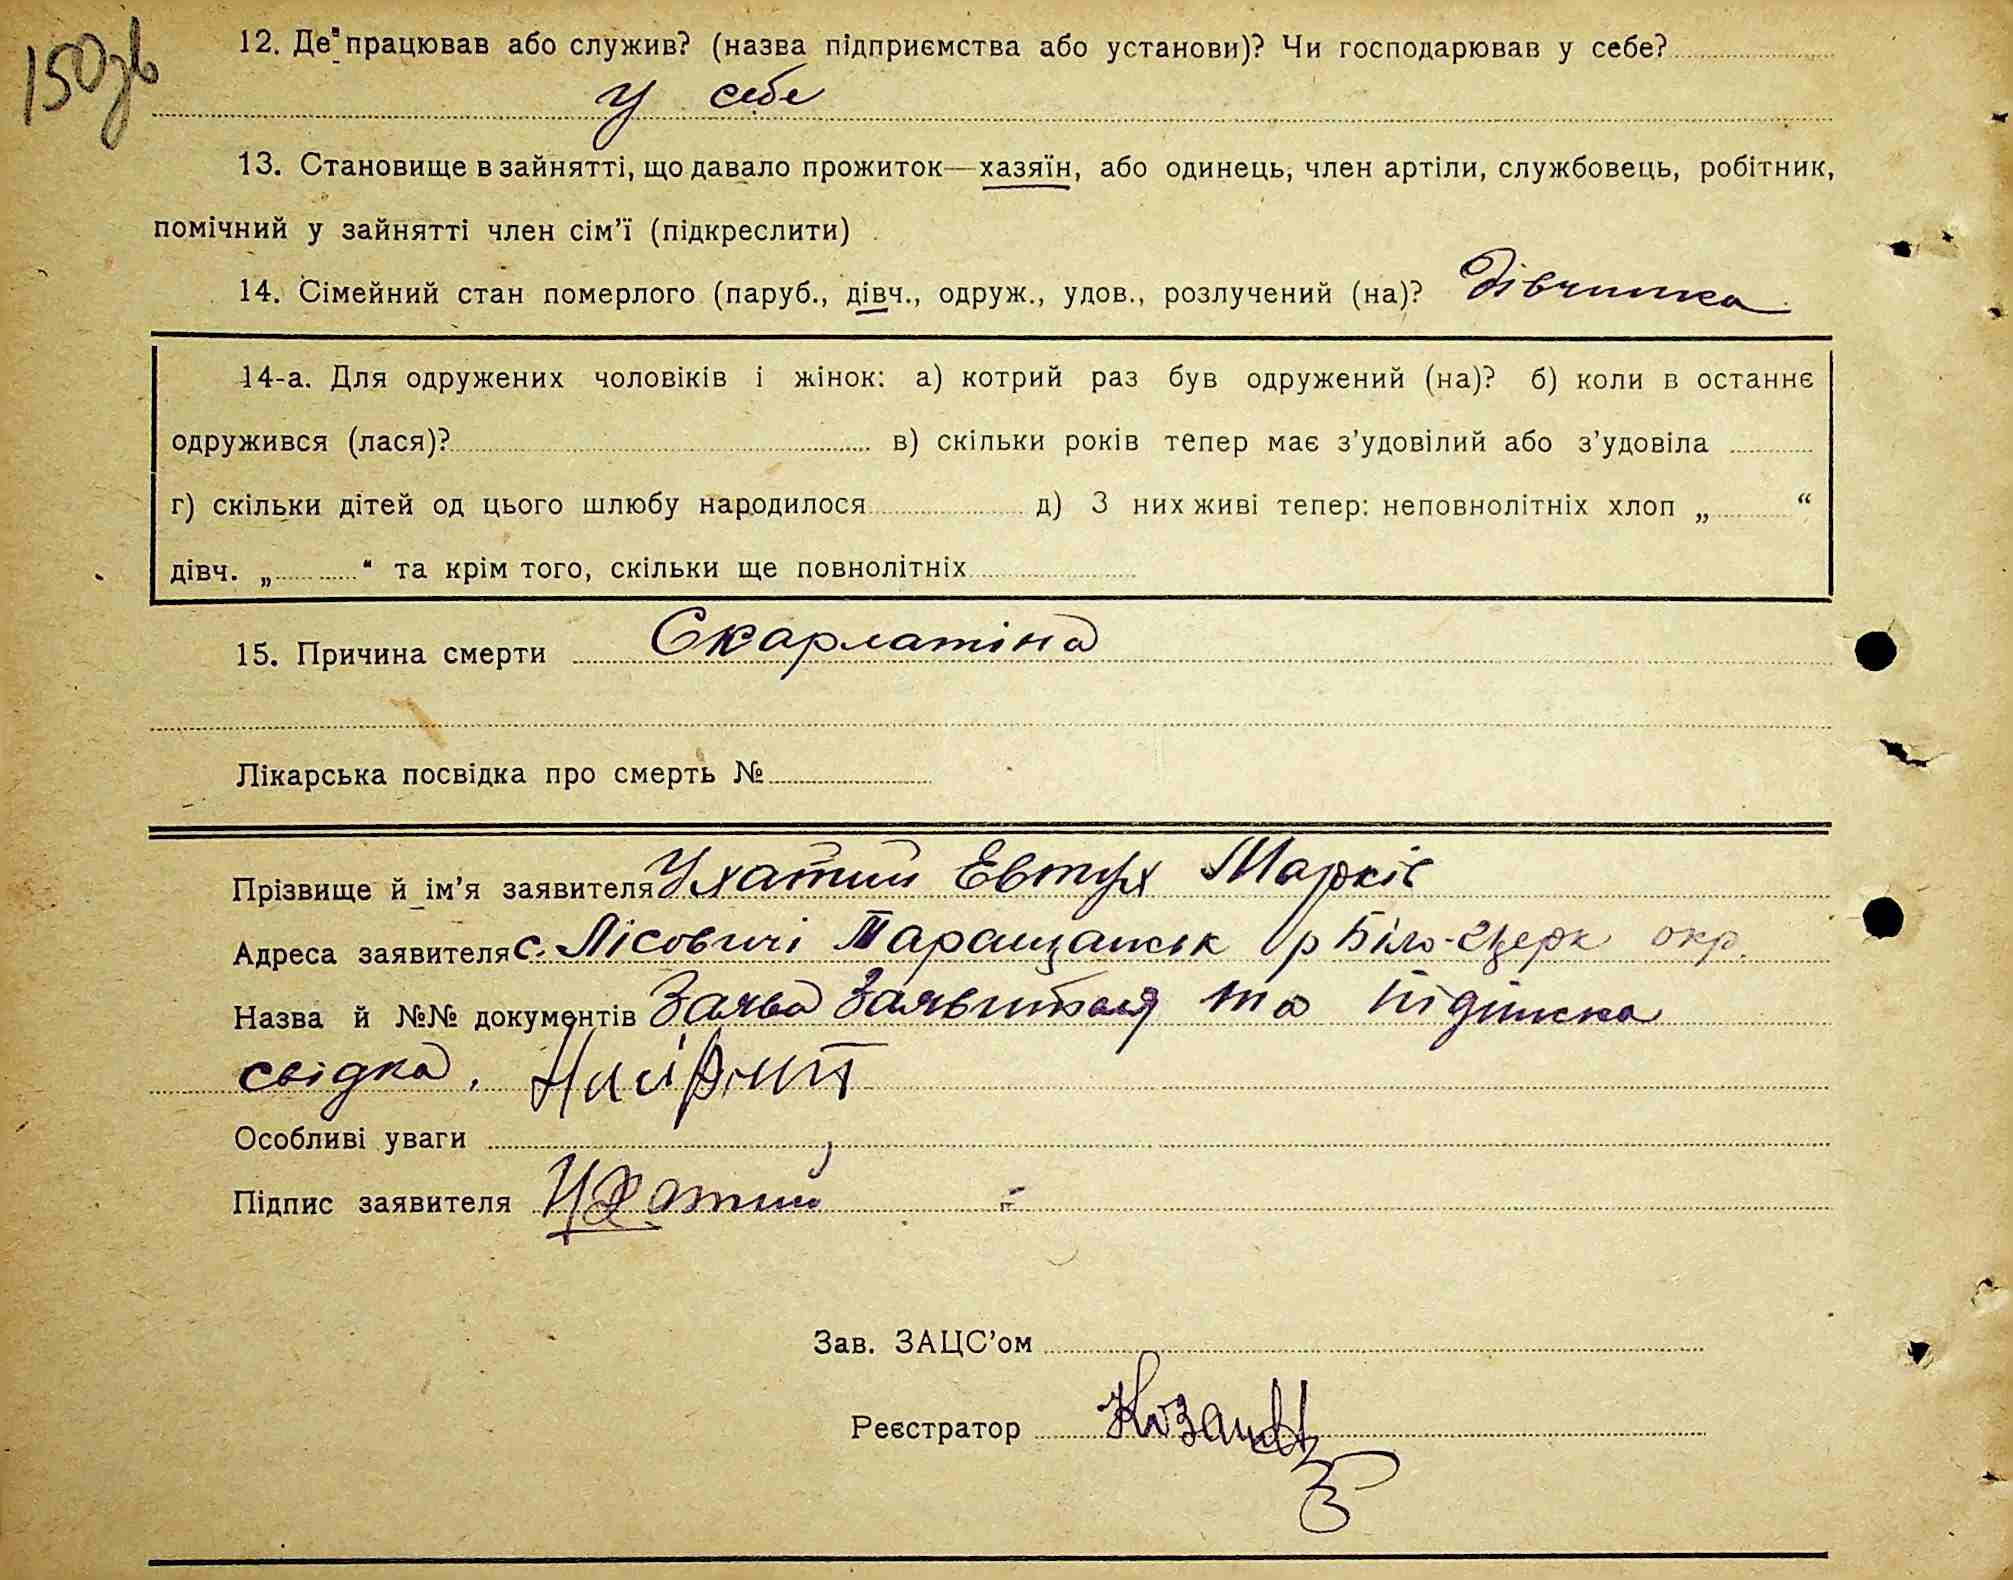 150зв
12. Де працював або служив? (назва підприємства або установи)? Чи господарював у себе?
у себе
13. Становище в зайнятті, що давало прожиток—хазяїн, або одинець, член артіли, службовець, робітник,
помічний у зайнятті член сім’ї (підкреслити)
14. Сімейний стан померлого (паруб., дівч., одруж., удов., розлучений (на)? дівчинка
14-а. Для одружених чоловіків і жінок: а) котрий раз був одружений (на)? б) коли в останнє
одружився (лася)? в) скільки років тепер має з’удовілий або з’удовіла
г) скільки дітей од цього шлюбу народилося д) З них живі тепер: неповнолітніх хлоп „ “
дівч. „ “ та крім того, скільки ще повнолітніх
15. Причина смерти Скарлатіна
Лікарська посвідка про смерть №
Прізвище й ім’я заявителя Ухатий Евтух Марків
Адреса заявителя с. Лісовичі Таращанськ р Біло-Церк окр.
Назва й №№ документів Заява Заявителя та підписка
свідка,
Особливі уваги
Підпис заявителя Ухатий
Зав. ЗАЦС’ом
Реєстратор